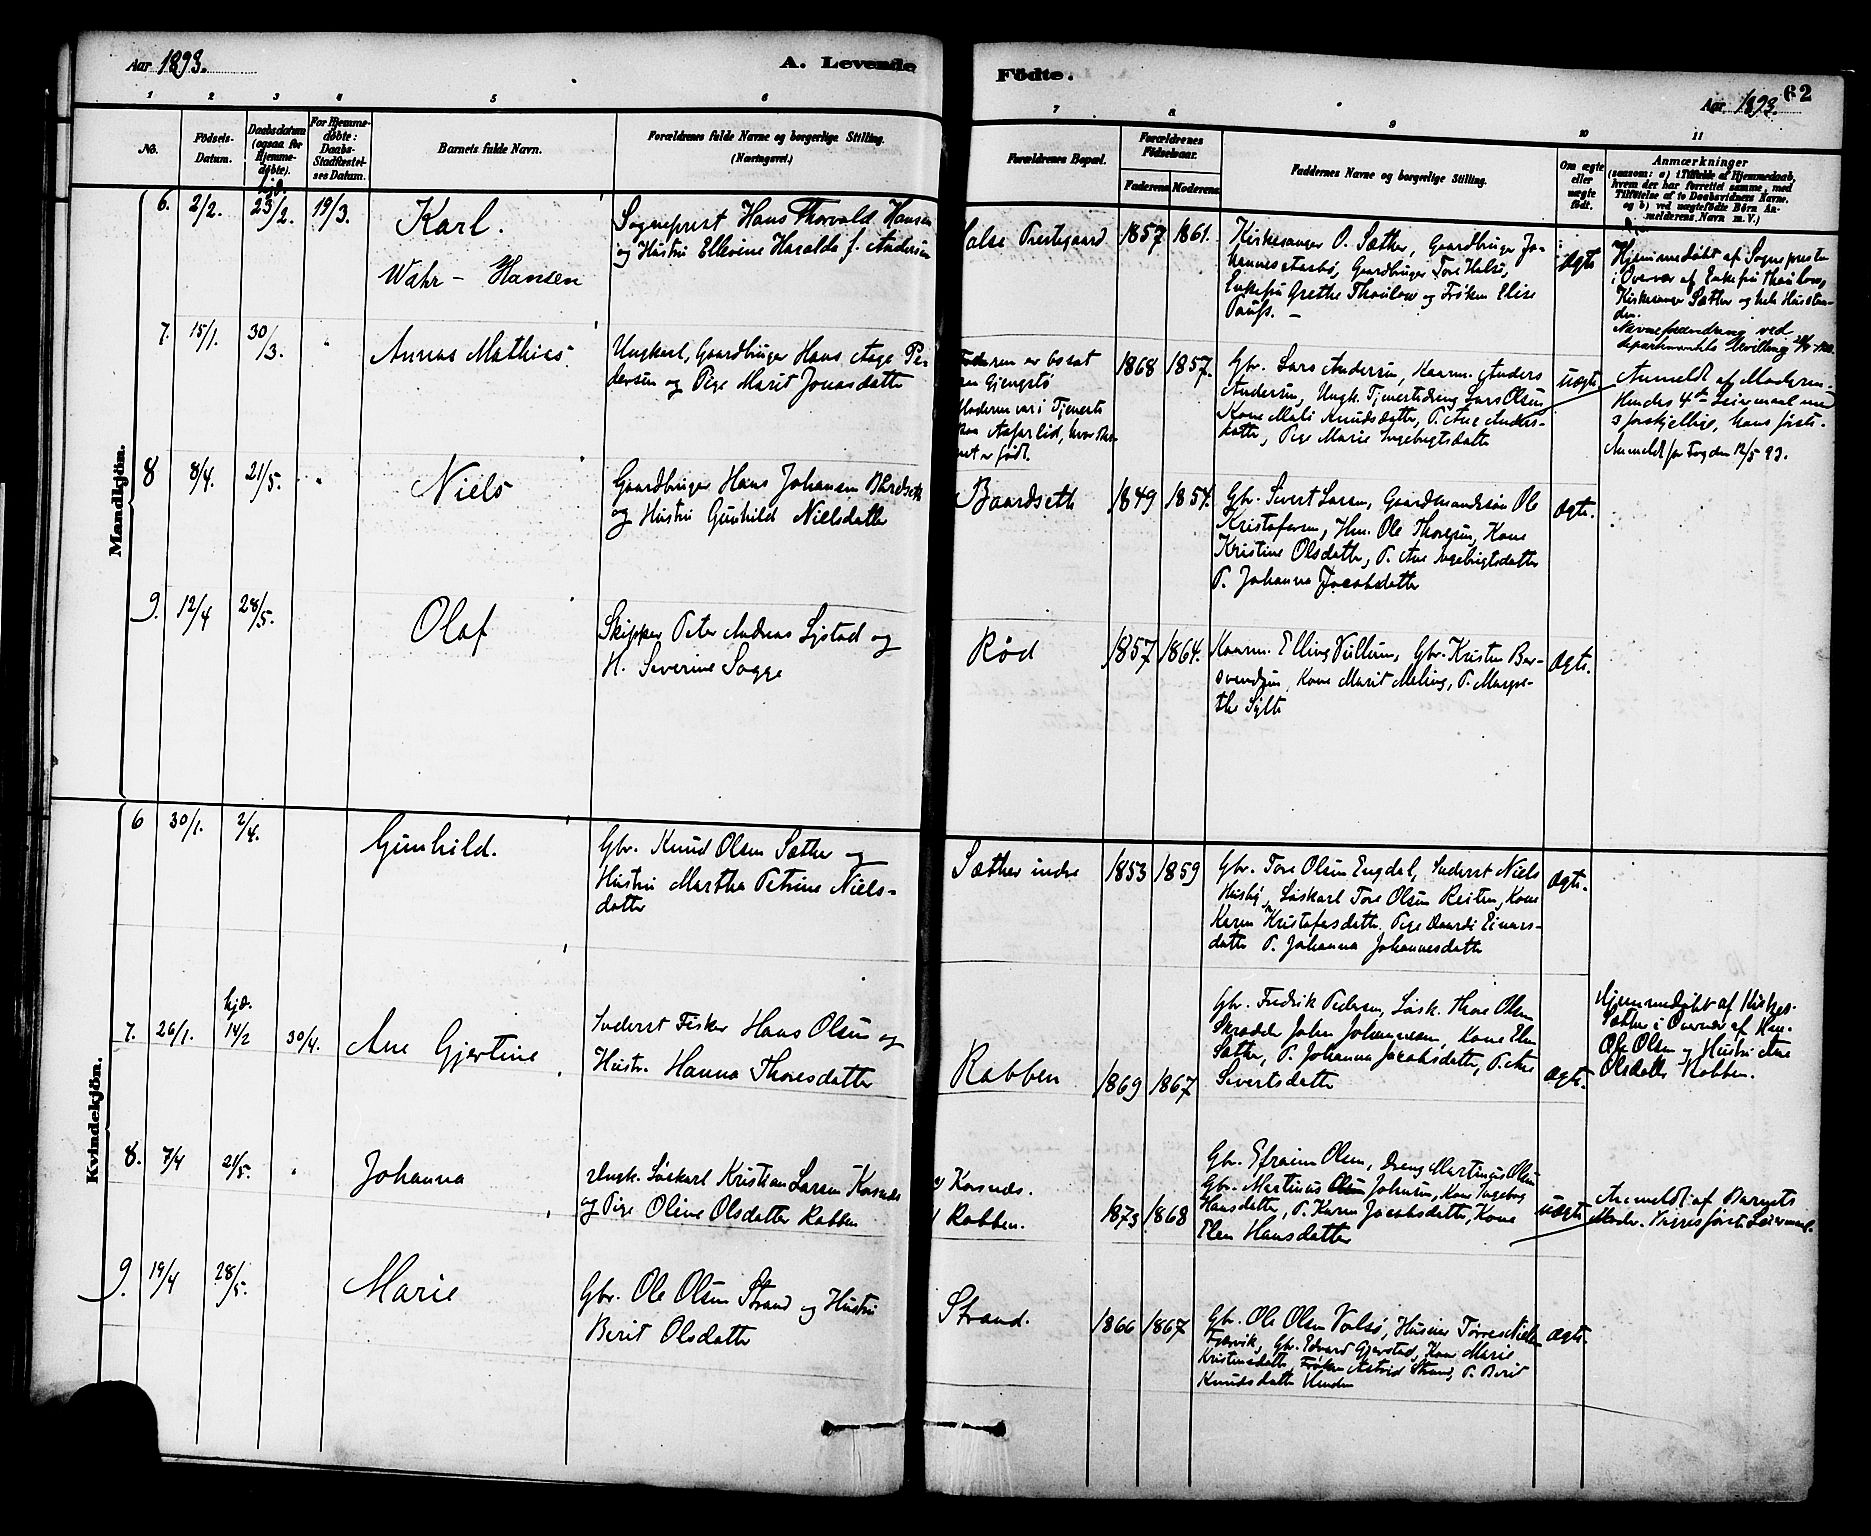 Aar 1893.
A. Levende
Födte.
Aar 1893.
62
1 2 3 4 5 6 7 8 9 10 11
No.
Födsels-Datum.
Daabsdatum (ogsaa for Hjemme-döbte).
For Hjemme-döbte: Daabs-Stadfæstel-ses Datum.
Barnets fulde Navn.
Forældrenes fulde Navne og borgerlige Stilling. (Næringsvei.)
Forældrenes Bopæl.
Forældrenes Födselsaar.
Faderens Moderens.
Faddernes Navne og borgerlige Stilling.
Om ægte eller uægte födt.
Anmærkninger
(saasom: a) i Tilfælde af Hjemmedaab, hvem der har forrettet samme, med Tilföielse af to Daabsvidners Navne, og b) ved uægtefödte Börn Anmelderens Navn m. V.)
Mandkjön.
6. 2/2. hjd. 23/2. 19/3.
Karl.
Wahr-Hansen
Sogneprest Hans Thorvald Hansen
og Hustru Ellevine Haralda f. Andersen
Halse Prestegaard
1857 1861.
Kirkesanger O. Sæther, Gaardbruger Jo-
hannes Aarbø, Gaardbruger Tore Halse,
Enkefru Grethe Thaulow og Frøken Elise
Pauss. –
Ægte
Hjemmedøbt af Sognepresten
i Overvær af Enkefru Thaulow,
Kirkesanger Sæther og hele Husstan-
den.
Navneforandring ved
departementets Bevilling
7. 15/1. 30/3. "
Annas Mathias
Ungkarl, Gaardbruger Hans Aage Pe-
dersen og Pige Marit Jonasdatter
Faderen er bosat
paa Gjengstø
Moderen var i Tjeneste
paa Aasfarlid, hvor Bar-
net er født.
1868 1857.
Gbr. Lars Andersen, Kaarm. Anders
Andersen, Ungk. Tjenestedreng Lars Olsen
Kone Mali Knudsdatter, P. Ane Anders-
datter, Pige Marie Ingebrigtsdatter
uægte
Anmeldt af Moderen.
Hendes 4de Leiermaal med
3 forskjellige, hans første.
Anmeldt for Fogden 12/5 93.
8 8/4. 21/5. "
Niels
Gaardbruger Hans Johansen Bardseth
og Hustru Gunhild Nielsdatter
Baardseth
1849 1854.
Gbr. Sivert Larsen, Gaardmandssøn Ole
Kristofersen, Hm. Ole Thoresen, Kone
Kristine Olsdatter, P. Ane Ingebrigtsdatter
P. Johanna Jacobsdatter
Ægte.
9. 12/4 28/5.
Olaf
Skipper Peter Andreas Lystad og
H. Severine Sogge
Rød
1857 1864.
Kaarm. Elling Vullum, Gbr. Kristen Ber-
svendsen, Kone Marit Meling, P. Margre-
the Sylte
Ægte.
Kvindekjön.
6 30/1. 2/4.
Gunhild.
Gbr. Knud Olsen Sæther og
Hustru Martha Petrine Niels-
datter
Sæther indre
1853 1859
Gbr. Tore Olsen Engdal, Inderst Niels
Husby, Løskarl Tore Olsen Reiten, Kone
Karen Kristofersdatter, Pige Baardi Einars-
datter P. Johanna Johannesdatter
Ægte.
7. 26/1. hjd. 14/2 30/4.
Ane Gjertine
Inderst Fisker Hans Olsen og
Hustr. Hanna Thoresdatter
Rabben
1869 1867
Gbr. Fredrik Pedersen, Løsk. Thore Olsen
Skrædder John Johannesen, Kone Elen
Sæther, P. Johanna Jacobsdatter, P. Ane
Sivertsdatter
Ægte.
Hjemmedøbt af Kirkes.
Sæther i Overvær af Hm.
Ole Olsen og Hustru Ane
Olsdatter Rabben.
8. 7/4 21/5. "
Johanna
Ungk. Løskarl Kristian Larsen Korsnæs
og Pige Oline Olsdatter Rabben
Korsnæs.
Rabben.
1873 1868
Gbr. Efraim Olsen, Dreng Martinus Olsen
Gbr. Martinus Johnsen, Kone Ingeborg
Hansdatter, P. Karen Jacobsdatter, Kone
Elen Hansdatter
uægte
Anmeldt af Barnets
Moder. Begges første Leiermaal.
9. 19/4 28/5.
Marie
Gbr. Ole Olsen Strand og Hustru
Berit Olsdatter
Strand.
1866 1867
Gbr. Ole Olsen Valsø, Husmand Tørres Nielsen
Fjærvik, Gbr. Edvard Gjerstad, Kone Marie
Kristensdatter, Frøken Astrid Strand, P. Berit
Knudsdatter Henden
Ægte.